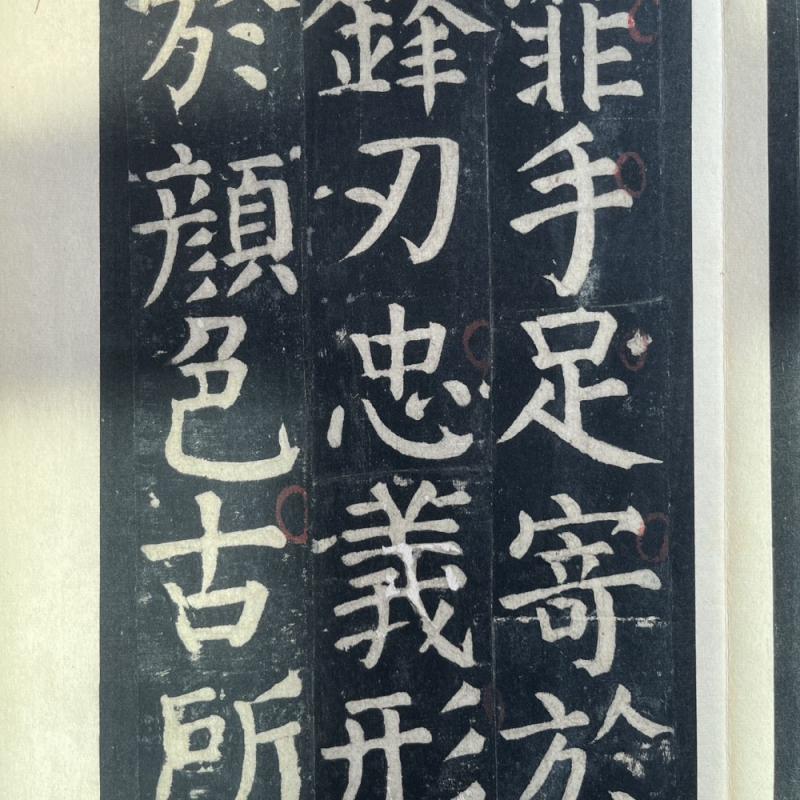 手足寄於
鋒刃忠義形
於顏色古所